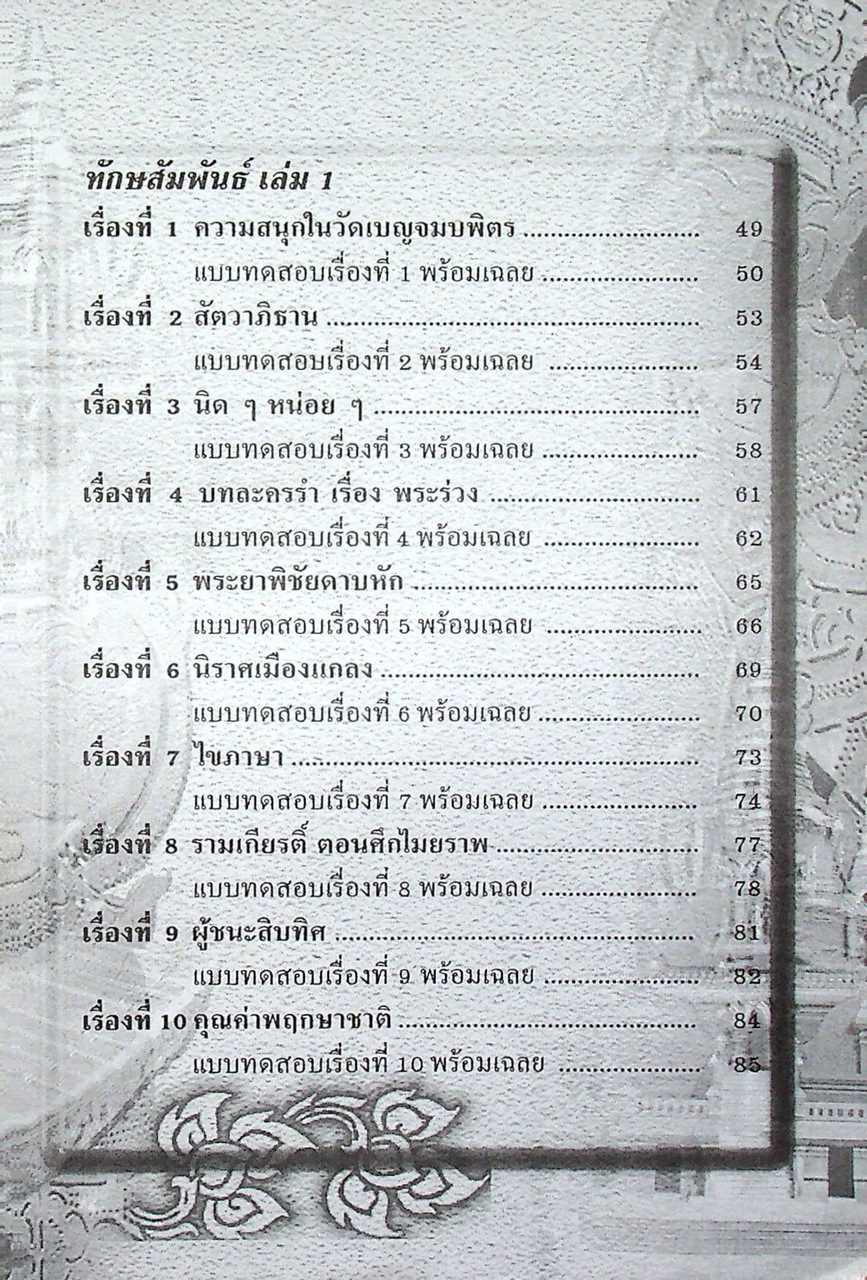 ทักษสัมพันธ์ เล่ม 1
เรื่องที่ 1 ความสนุกในวัดเบญจมบพิตร ........................ 49
แบบทดสอบเรื่องที่ 1 พร้อมเฉลย ........................ 50
เรื่องที่ 2 สัตวาภิธาน ........................ 53
แบบทดสอบเรื่องที่ 2 พร้อมเฉลย ........................ 54
เรื่องที่ 3 นิด ๆ หน่อย ๆ ........................ 57
แบบทดสอบเรื่องที่ 3 พร้อมเฉลย ........................ 58
เรื่องที่ 4 บทละครรำ เรื่อง พระร่วง ........................ 61
แบบทดสอบเรื่องที่ 4 พร้อมเฉลย ........................ 62
เรื่องที่ 5 พระยาพิชัยดาบหัก ........................ 65
แบบทดสอบเรื่องที่ 5 พร้อมเฉลย ........................ 66
เรื่องที่ 6 นิราศเมืองแกลง ........................ 69
แบบทดสอบเรื่องที่ 6 พร้อมเฉลย ........................ 70
เรื่องที่ 7 ไขภาษา ........................ 73
แบบทดสอบเรื่องที่ 7 พร้อมเฉลย ........................ 74
เรื่องที่ 8 รามเกียรติ์ ตอนศึกไมยราพ ........................ 77
แบบทดสอบเรื่องที่ 8 พร้อมเฉลย ........................ 78
เรื่องที่ 9 ผู้ชนะสิบทิศ ........................ 81
แบบทดสอบเรื่องที่ 9 พร้อมเฉลย ........................ 82
เรื่องที่ 10 คุณค่าพฤกษาชาติ ........................ 84
แบบทดสอบเรื่องที่ 10 พร้อมเฉลย ........................ 85